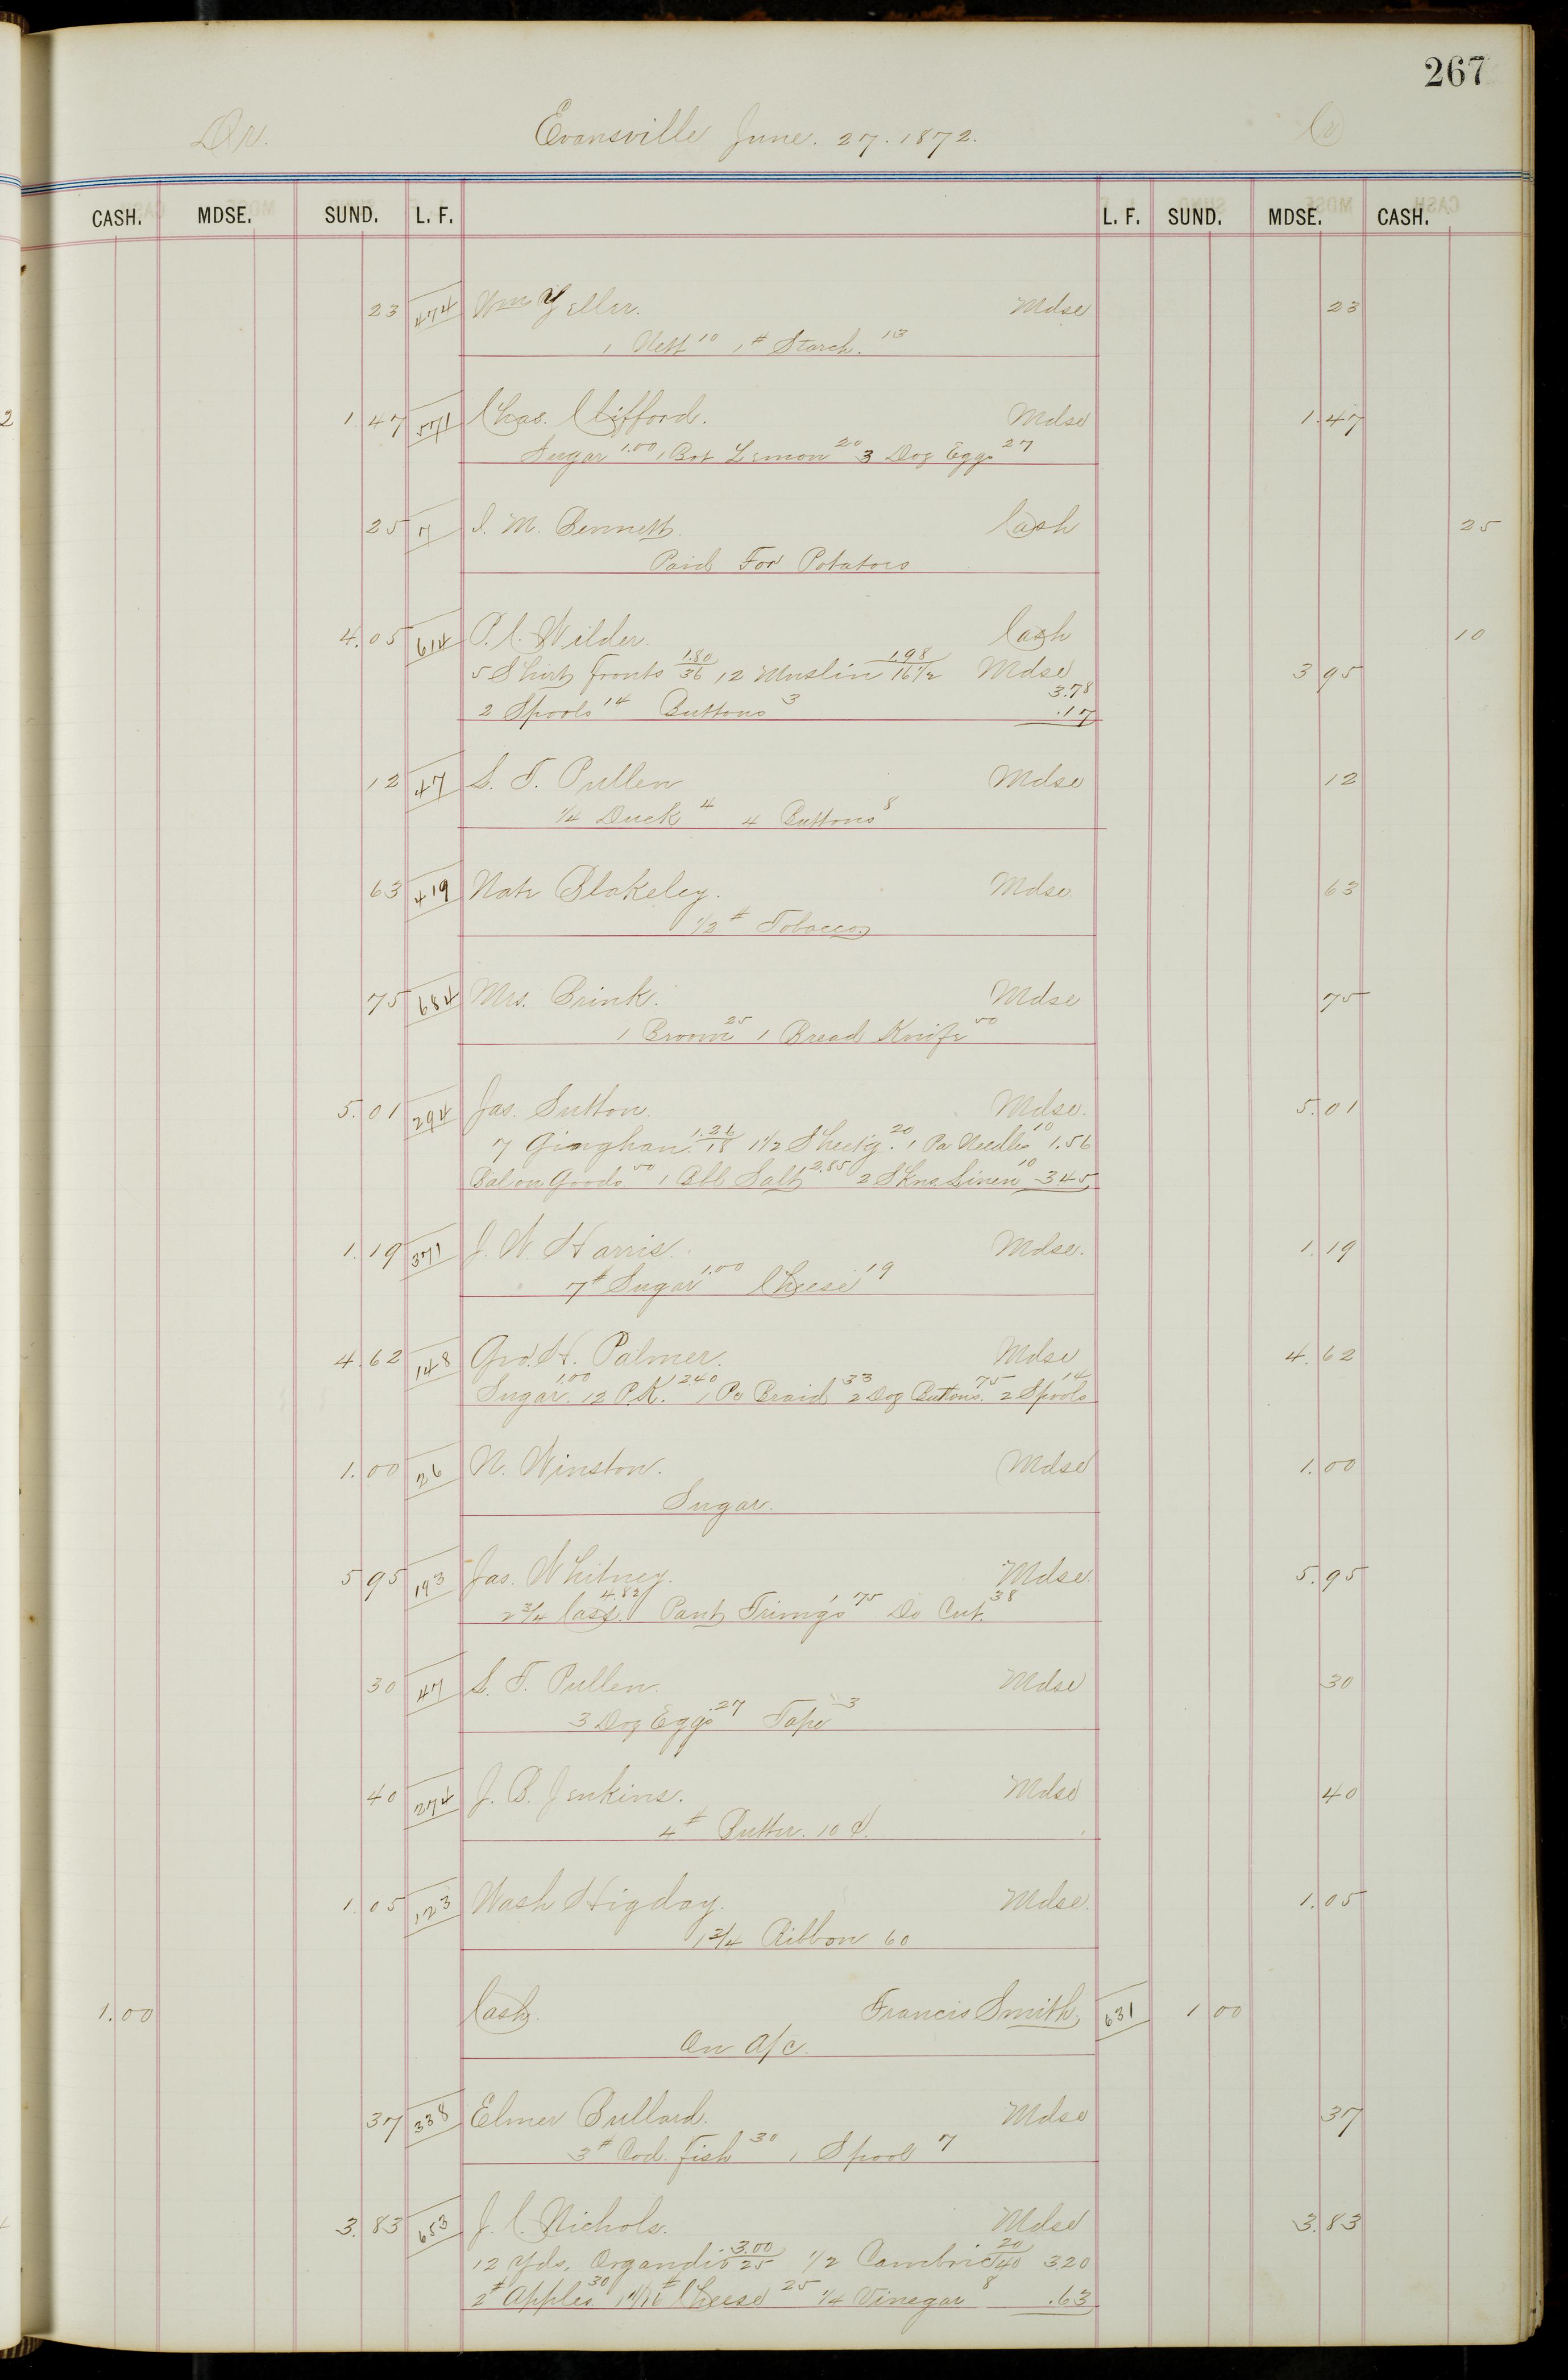 267
Dr. Evansville June. 27. 1872. Cr
CASH. MDSE. SUND. L. F. L. F. SUND. MDSE. CASH.
23 474 Wm Yeller. Mdse 23
1 Nett 10 1# Starch. 13
1.47 571 Chas. Clifford. Mdse 1.47
Sugar 1.00 1 Bot Lemon 20 3 Doz Eggs 27
25 7 I. M. Bennett. Cash 25
Paid For Potatoes
4.05 614 P. C. Wilder. Cash 10
5 Shirt Fronts 1.80/36 12 Muslin 1.98/16 1/2 Mdse 3 95
3.78
2 Spools 14 Buttons 3 .17
12 47 S. T. Pullen Mdse 12
1/4 Duck 4 4 Buttons 8
63 419 Nate Blakeley. Mdse. 63
1/2 # Tobacco
75 684 Mrs. Brink. Mdse 75
1 Broom 25 1 Bread Knife 50
5.01 294 Jas. Sutton. Mdse. 5.01
7 Gingham. 1.26/18 1 1/2 Sheet'g. 20 1 Pa Needles 10 1.56
Bal on Goods 50 1 Bbl Salt 2.85 2 Skns Linen 10 3.45
1.19 371 J. W. Harris. Mdse. 1.19
7# Sugar 1.00 Cheese 19
4.62 148 Geo. H. Palmer. Mdse 4.62
Sugar. 1.00 12 P.K. 2.40 1 Pc Braid 33 2 Doz Buttons. 75 2 Spools 14
1.00 26 N. Winston. Mdse 1.00
Sugar.
5 95 193 Jas. Whitney. Mdse. 5.95
2 3/4 Cass. 4.82 Pant Trimg's 75 Do Cut. 38
30 47 S. T. Pullen. Mdse 30
3 Doz Eggs .27 Tape 3
40 274 J. B. Jenkins. Mdse 40
4# Butter. 10 ¢.
1.05 123 Wash Higday. Mdse. 1.05
1 3/4 Ribbon 60
1.00 Cash. Francis Smith, 631 1 00
On A/c.
37 338 Elmer Bullard. Mdse 37
3# Cod. Fish 30 1 Spool 7
3.83 653 J. C. Nichols. Mdse 3.83
12 Yds. Organdie 3.00/25 1/2 Cambric 20/40 3.20
2# Apples 30 1 1/16# Cheese 25 1/4 Vinegar 8 .63